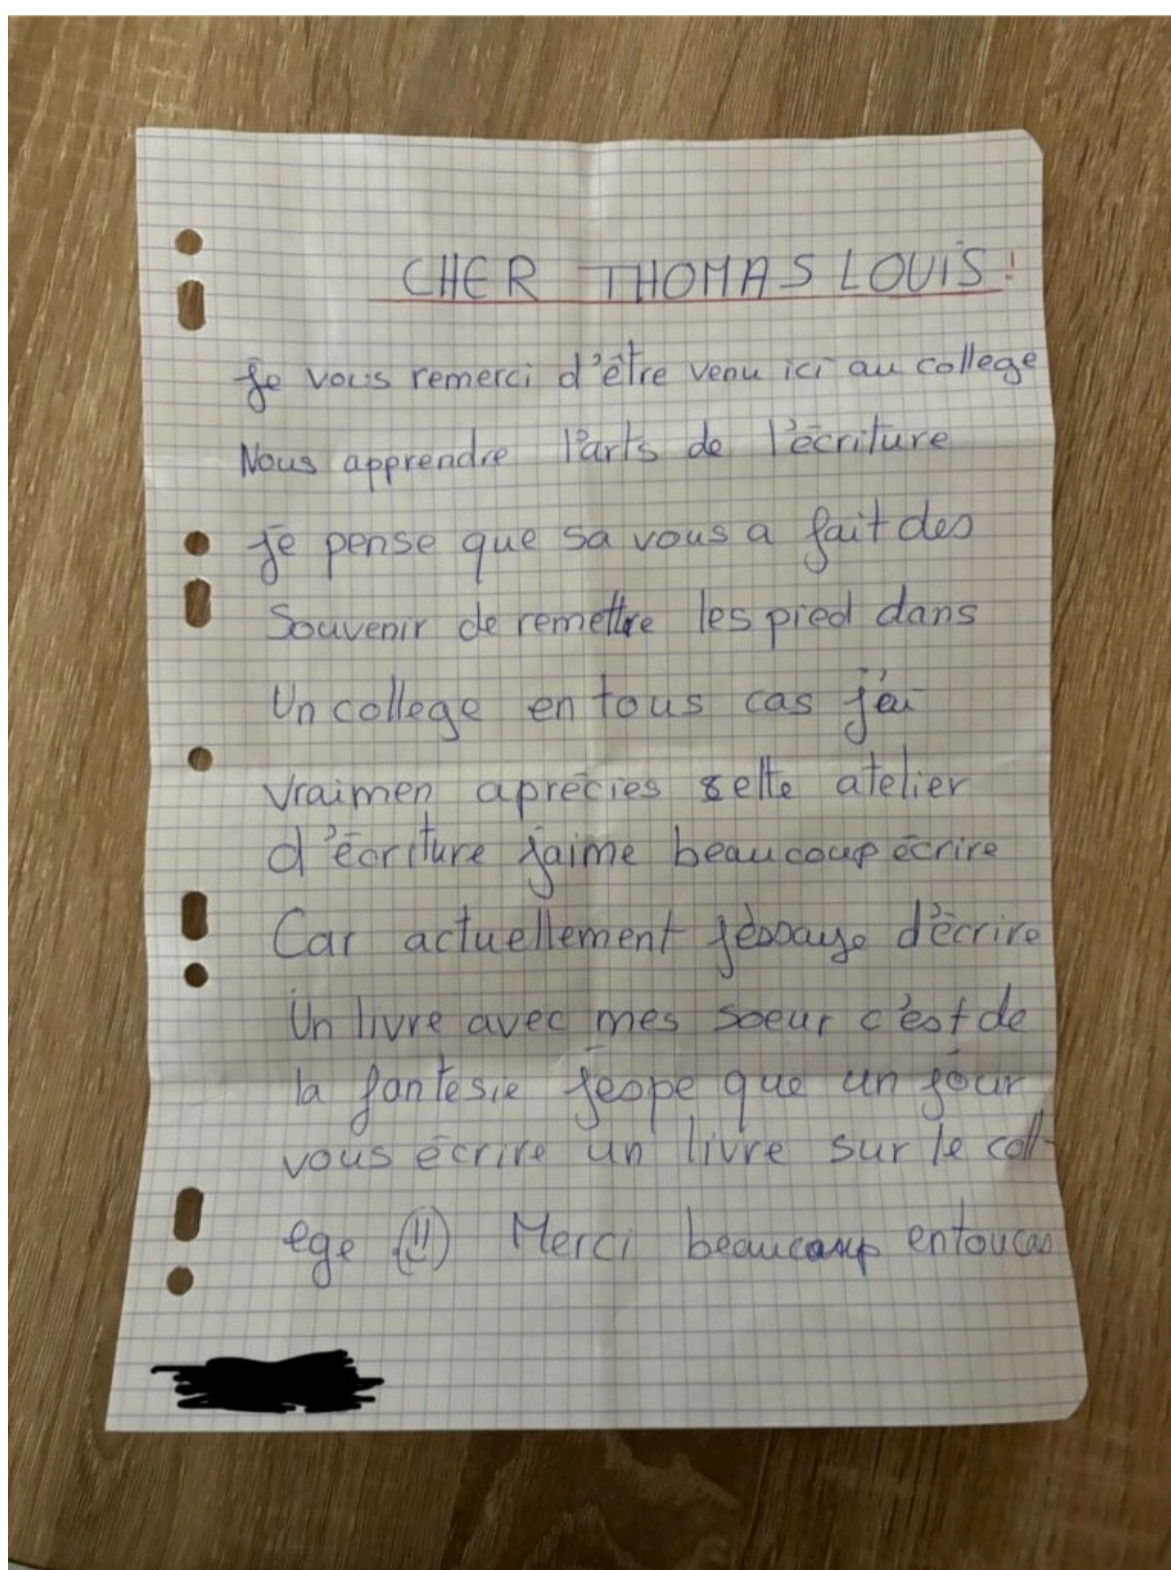 CHER THOMAS LOUIS !
Je vous remerci d'être venu ici au college
Nous apprendre l'arts de l'écriture
je pense que sa vous a fait des
Souvenir de remettre les pied dans
Un college en tous cas j'ai
vraimen aprécies sette atelier
d'écriture j'aime beaucoup écrire
Car actuellement j'essaye d'écrire
Un livre avec mes soeur c'est de
la fantésie jespe que un jour
vous écrire un livre sur le coll-
ege Merci beaucoup entoucas